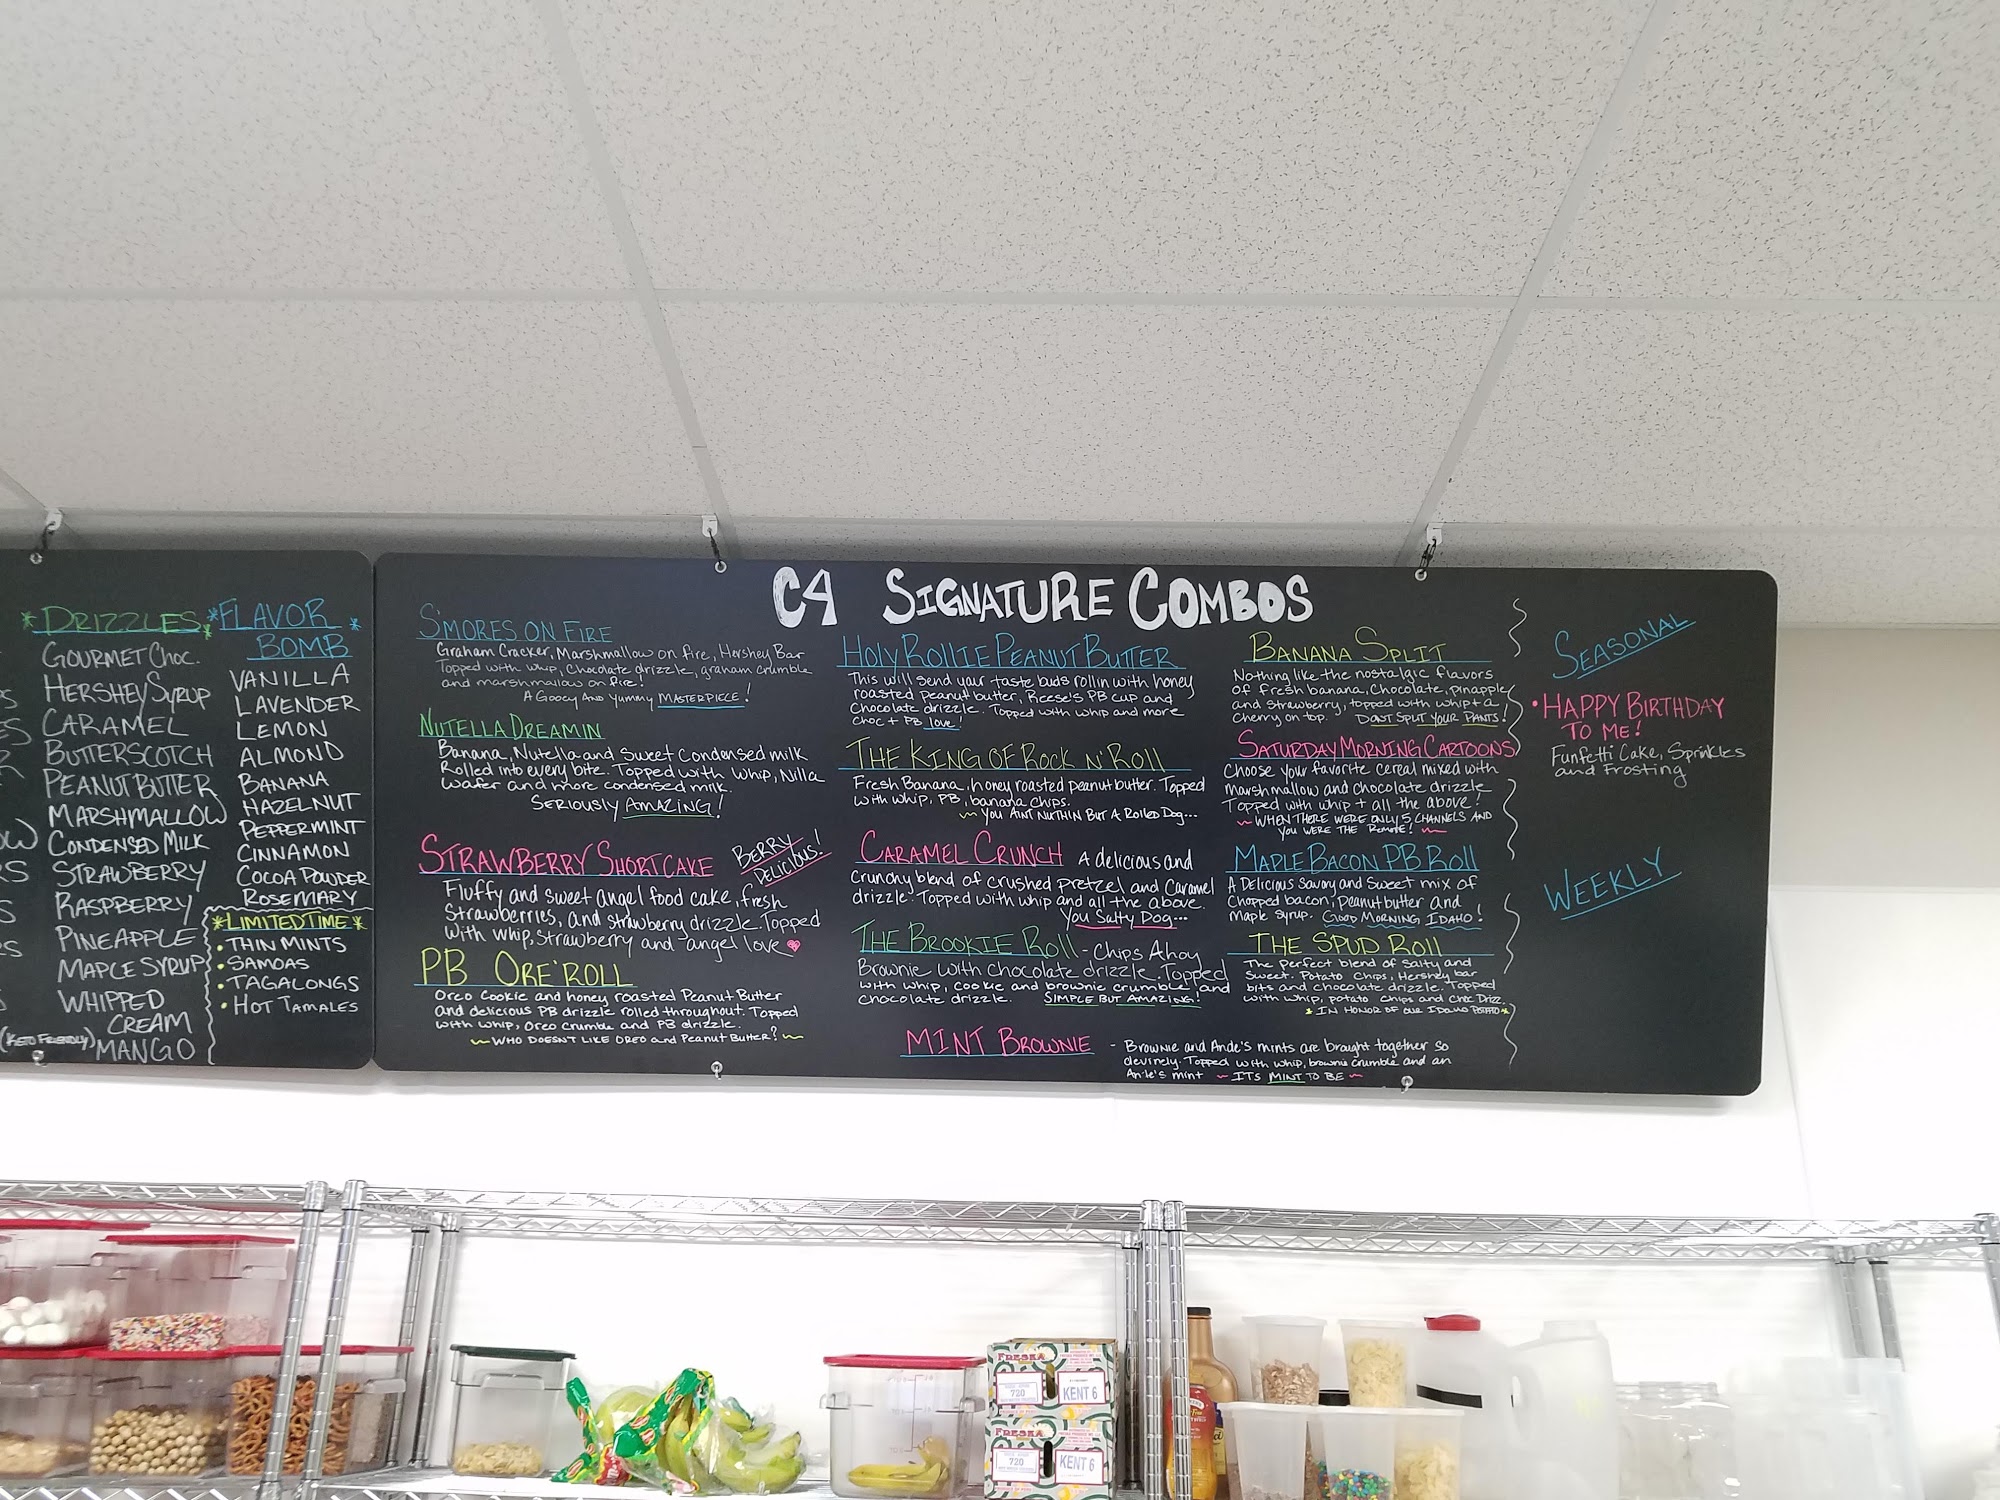 *DRIZZLES*
GOURMET CHOC.
HERSHEY SYRUP
CARAMEL
BUTTERSCOTCH
PEANUT BUTTER
MARSHMALLOW
CONDENSED MILK
STRAWBERRY
RASPBERRY
PINEAPPLE
MAPLE SYRUP
WHIPPED
CREAM
(KETO FRIENDLY)
MANGO
*FLAVOR
BOMB*
VANILLA
LAVENDER
LEMON
ALMOND
BANANA
HAZELNUT
PEPPERMINT
CINNAMON
COCOA POWDER
ROSEMARY
*LIMITED TIME*
• THIN MINTS
• SAMOAS
• TAGALONGS
• HOT TAMALES
C4 SIGNATURE COMBOS
S'MORES ON FIRE
Graham Cracker, Marshmallow on fire, Hershey Bar
Topped with whip, Chocolate drizzle, graham crumble
and marshmallow on fire!
A Gooey And Yummy MASTERPIECE!
NUTELLA DREAMIN
Banana, Nutella and Sweet Condensed milk
Rolled into every bite. Topped with whip, Nilla
wafer and more condensed milk.
SERIOUSLY AMAZING!
STRAWBERRY SHORTCAKE
BERRY
DELICIOUS!
Fluffy and sweet angel food cake, fresh
Strawberries, and strawberry drizzle. Topped
with whip, strawberry and angel love
PB ORE'ROLL
Oreo Cookie and honey roasted Peanut Butter
and delicious PB drizzle rolled throughout. Topped
with whip, Oreo crumble and PB drizzle.
~WHO DOESN'T LIKE OREO and Peanut Butter?~
HOLY ROLLIE PEANUT BUTTER
This will send your taste buds rollin with honey
roasted peanut butter, Reese's PB cup and
Chocolate drizzle. Topped with whip and more
choc + PB love!
THE KING OF ROCK N' ROLL
Fresh Banana, honey roasted peanut butter. Topped
with whip, PB, banana chips.
~ YOU AINT NUTHIN BUT A ROLLED DOG...
CARAMEL CRUNCH A delicious and
Crunchy blend of crushed pretzel and Caramel
drizzle. Topped with whip and all the above.
You Salty Dog...
THE BROOKIE ROLL - Chips Ahoy
Brownie with chocolate drizzle. Topped
with whip, cookie and brownie crumble and
chocolate drizzle. SIMPLE BUT AMAZING!
MINT BROWNIE - Brownie and Ande's mints are brought together so
devinely. Topped with whip, brownie crumble and an
Ande's mint ~ ITS MINT TO BE ~
BANANA SPLIT
Nothing like the nostalgic flavors
of fresh banana, Chocolate, pinapple
and strawberry, topped with whip + a
Cherry on top. DONT SPLIT YOUR PANTS!
SATURDAY MORNING CARTOONS
Choose your favorite cereal mixed with
marshmallow and chocolate drizzle
Topped with whip + all the above!
~ WHEN THERE WERE ONLY 5 CHANNELS AND
YOU WERE THE REMOTE! ~
MAPLE BACON PB ROLL
A Delicious Savory and Sweet mix of
Chopped bacon, peanut butter and
Maple syrup. GOOD MORNING IDAHO!
THE SPUD ROLL
The perfect blend of Salty and
Sweet. Potato Chips, Hershey bar
bits and chocolate drizzle. Topped
with whip, potato chips and Choc Drizz.
*IN HONOR OF OUR IDAHO POTATO*
SEASONAL
• HAPPY BIRTHDAY
TO ME!
Funfetti Cake, Sprinkles
and Frosting
WEEKLY
FRESKA
720
KENT 6
FRESKA
720
KENT 6